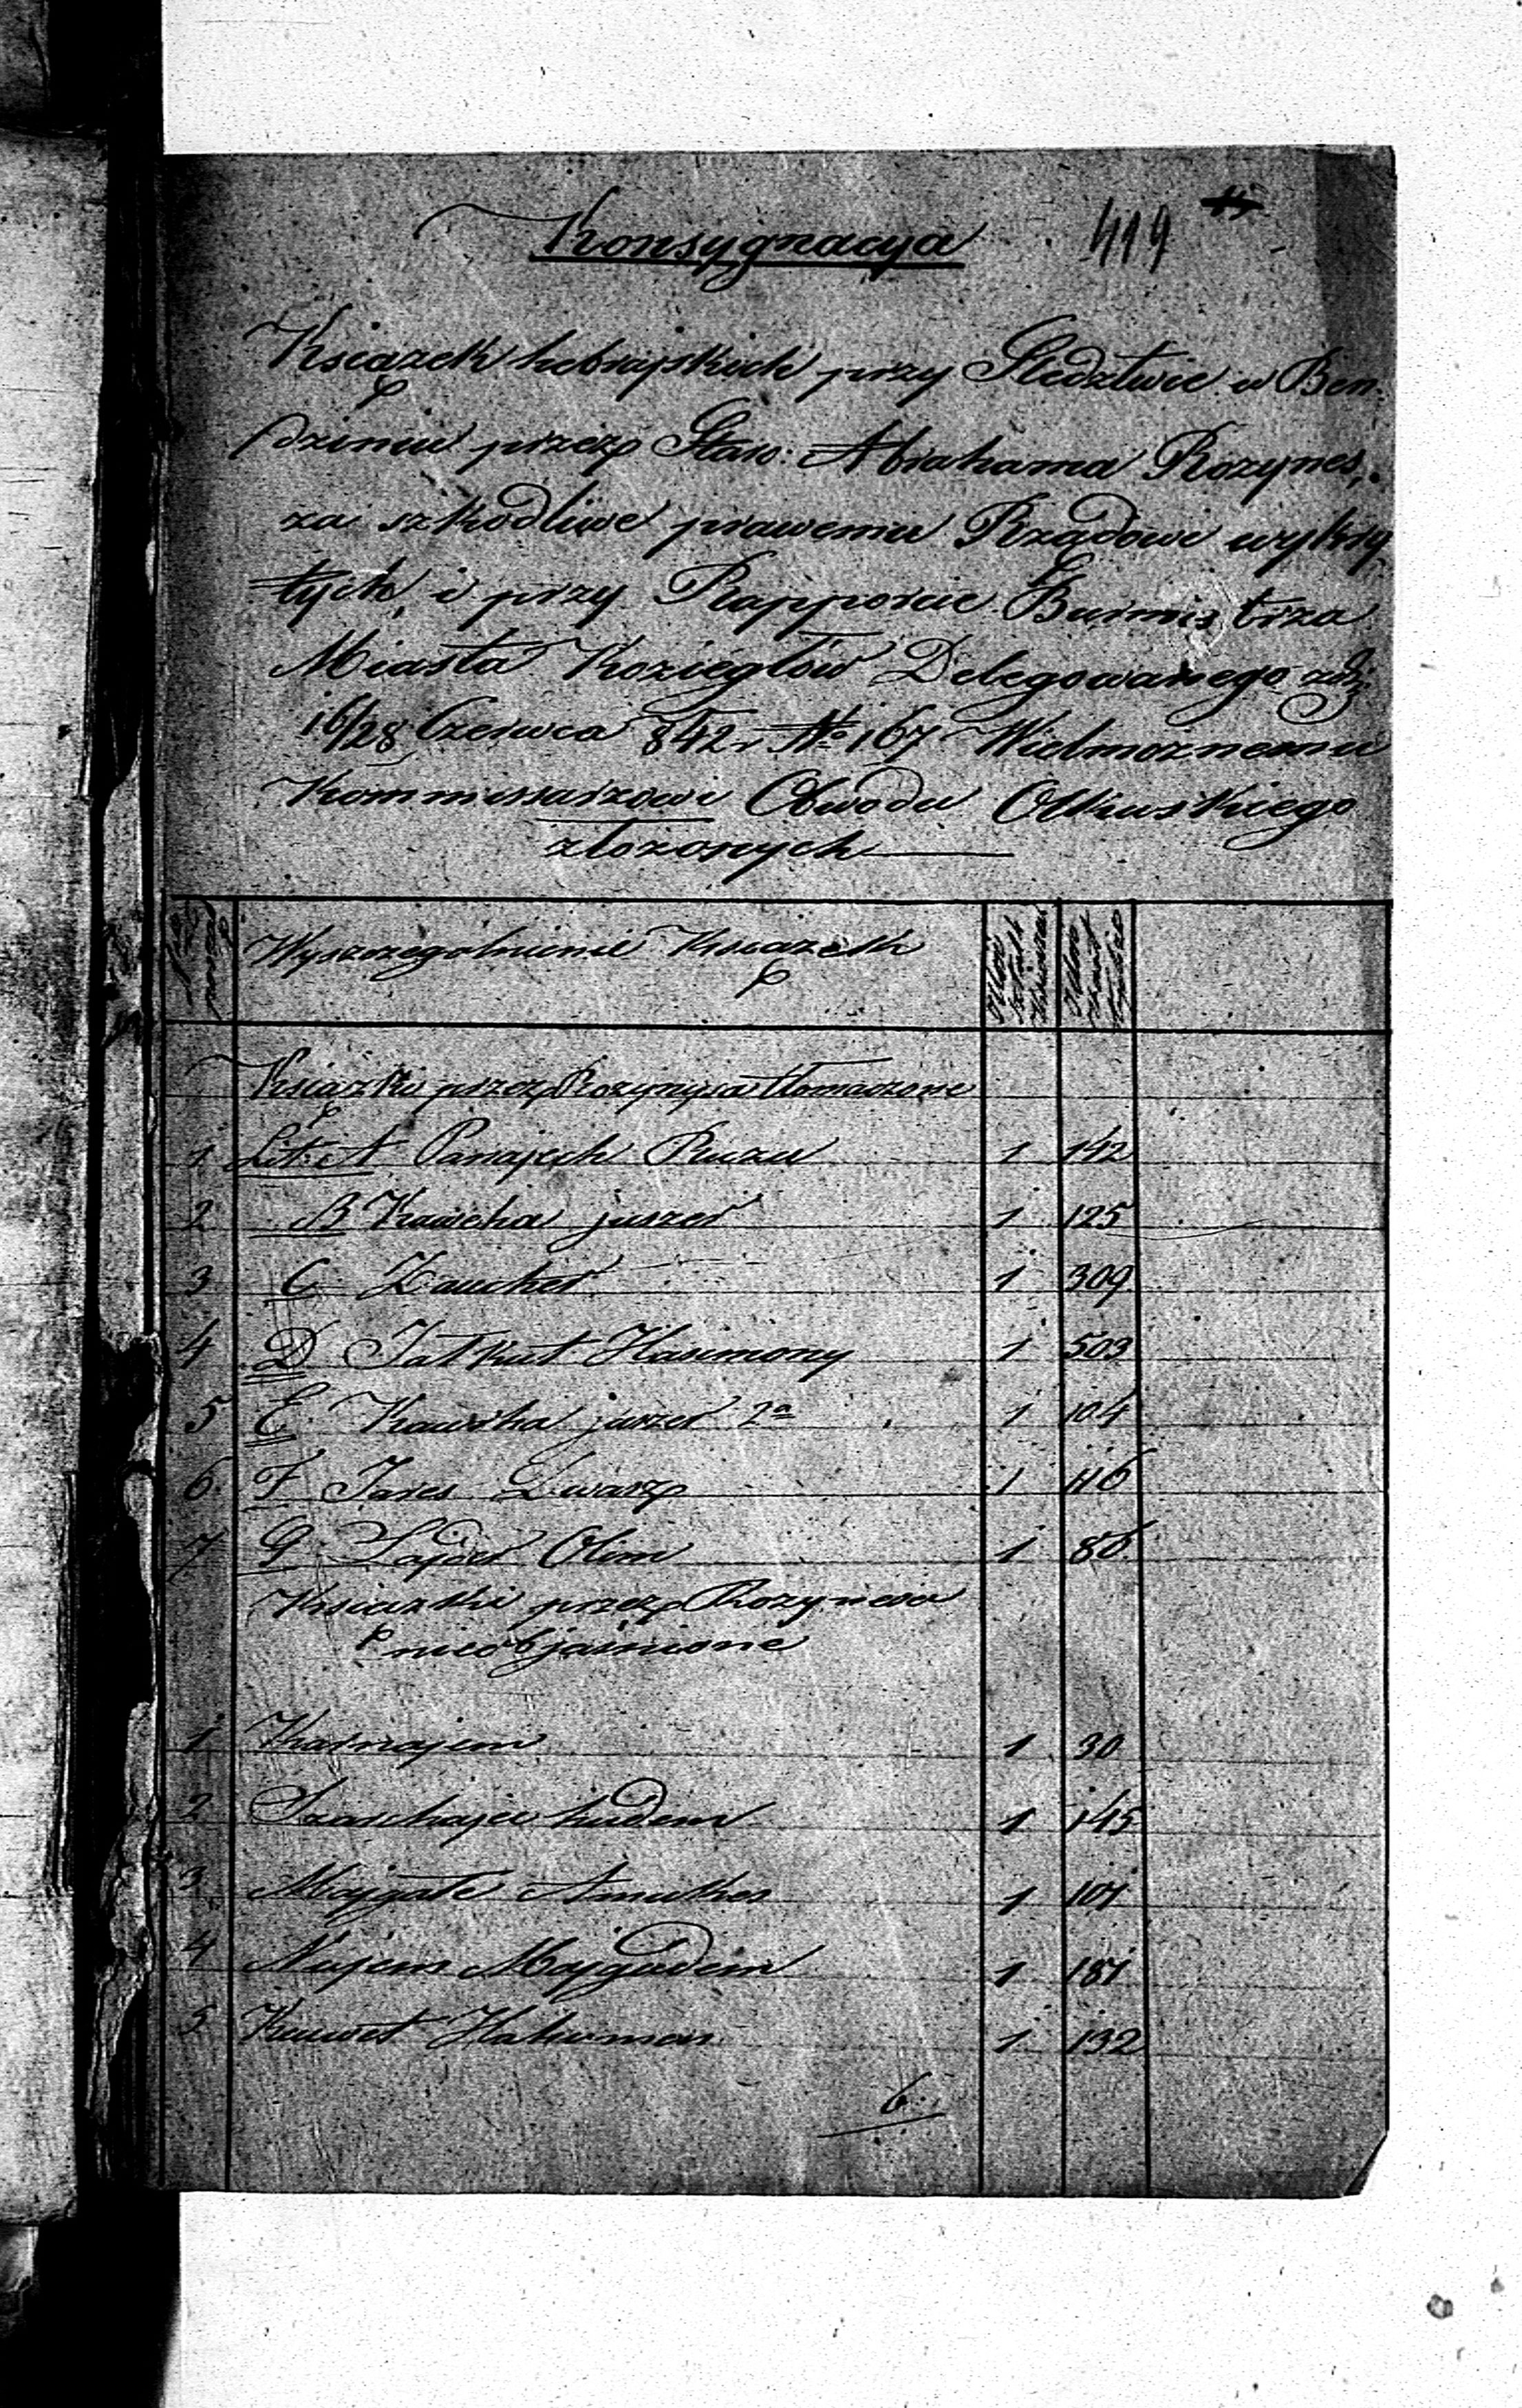 Konsygnacya 419
Książek hebrajskich przy Sledztwie w Ben-
dzinie przez Staro: Abrahama Rozynes,
za szkodliwe prawemu Rządowi wykry
tych, i przy Rapporcie Burmistrza
Miasta Koziegłów Delegowanego zdj:
16/28 Czerwca 842 r No 167 Wielmożnemu
Kommissarzowi Obwodu Olkuskiego
złożonych
Wyszczegolnienie Książek
Książki przez Rozynysa tłomaczone
1 Lit: A Panajech Ruzu 1 142
2 B Kawcha juszer 1 125
3 C Zaucher 1 309
4 D Jalkut Hasimony 1 503
5 E Kawcha juszer 2a 1 104
6 F Jares Dwasz 1 116
7 G Sajder Olim 1 86
Książki przez Rozynesa
nieobjaśnione
1 Karnajem 1 30
2 Szaschajee kudem 1 145
3 Majgale Amukes 1 101
4 Najem Majgudim 1 181
5 Kauwet Hakuman 1 132
6